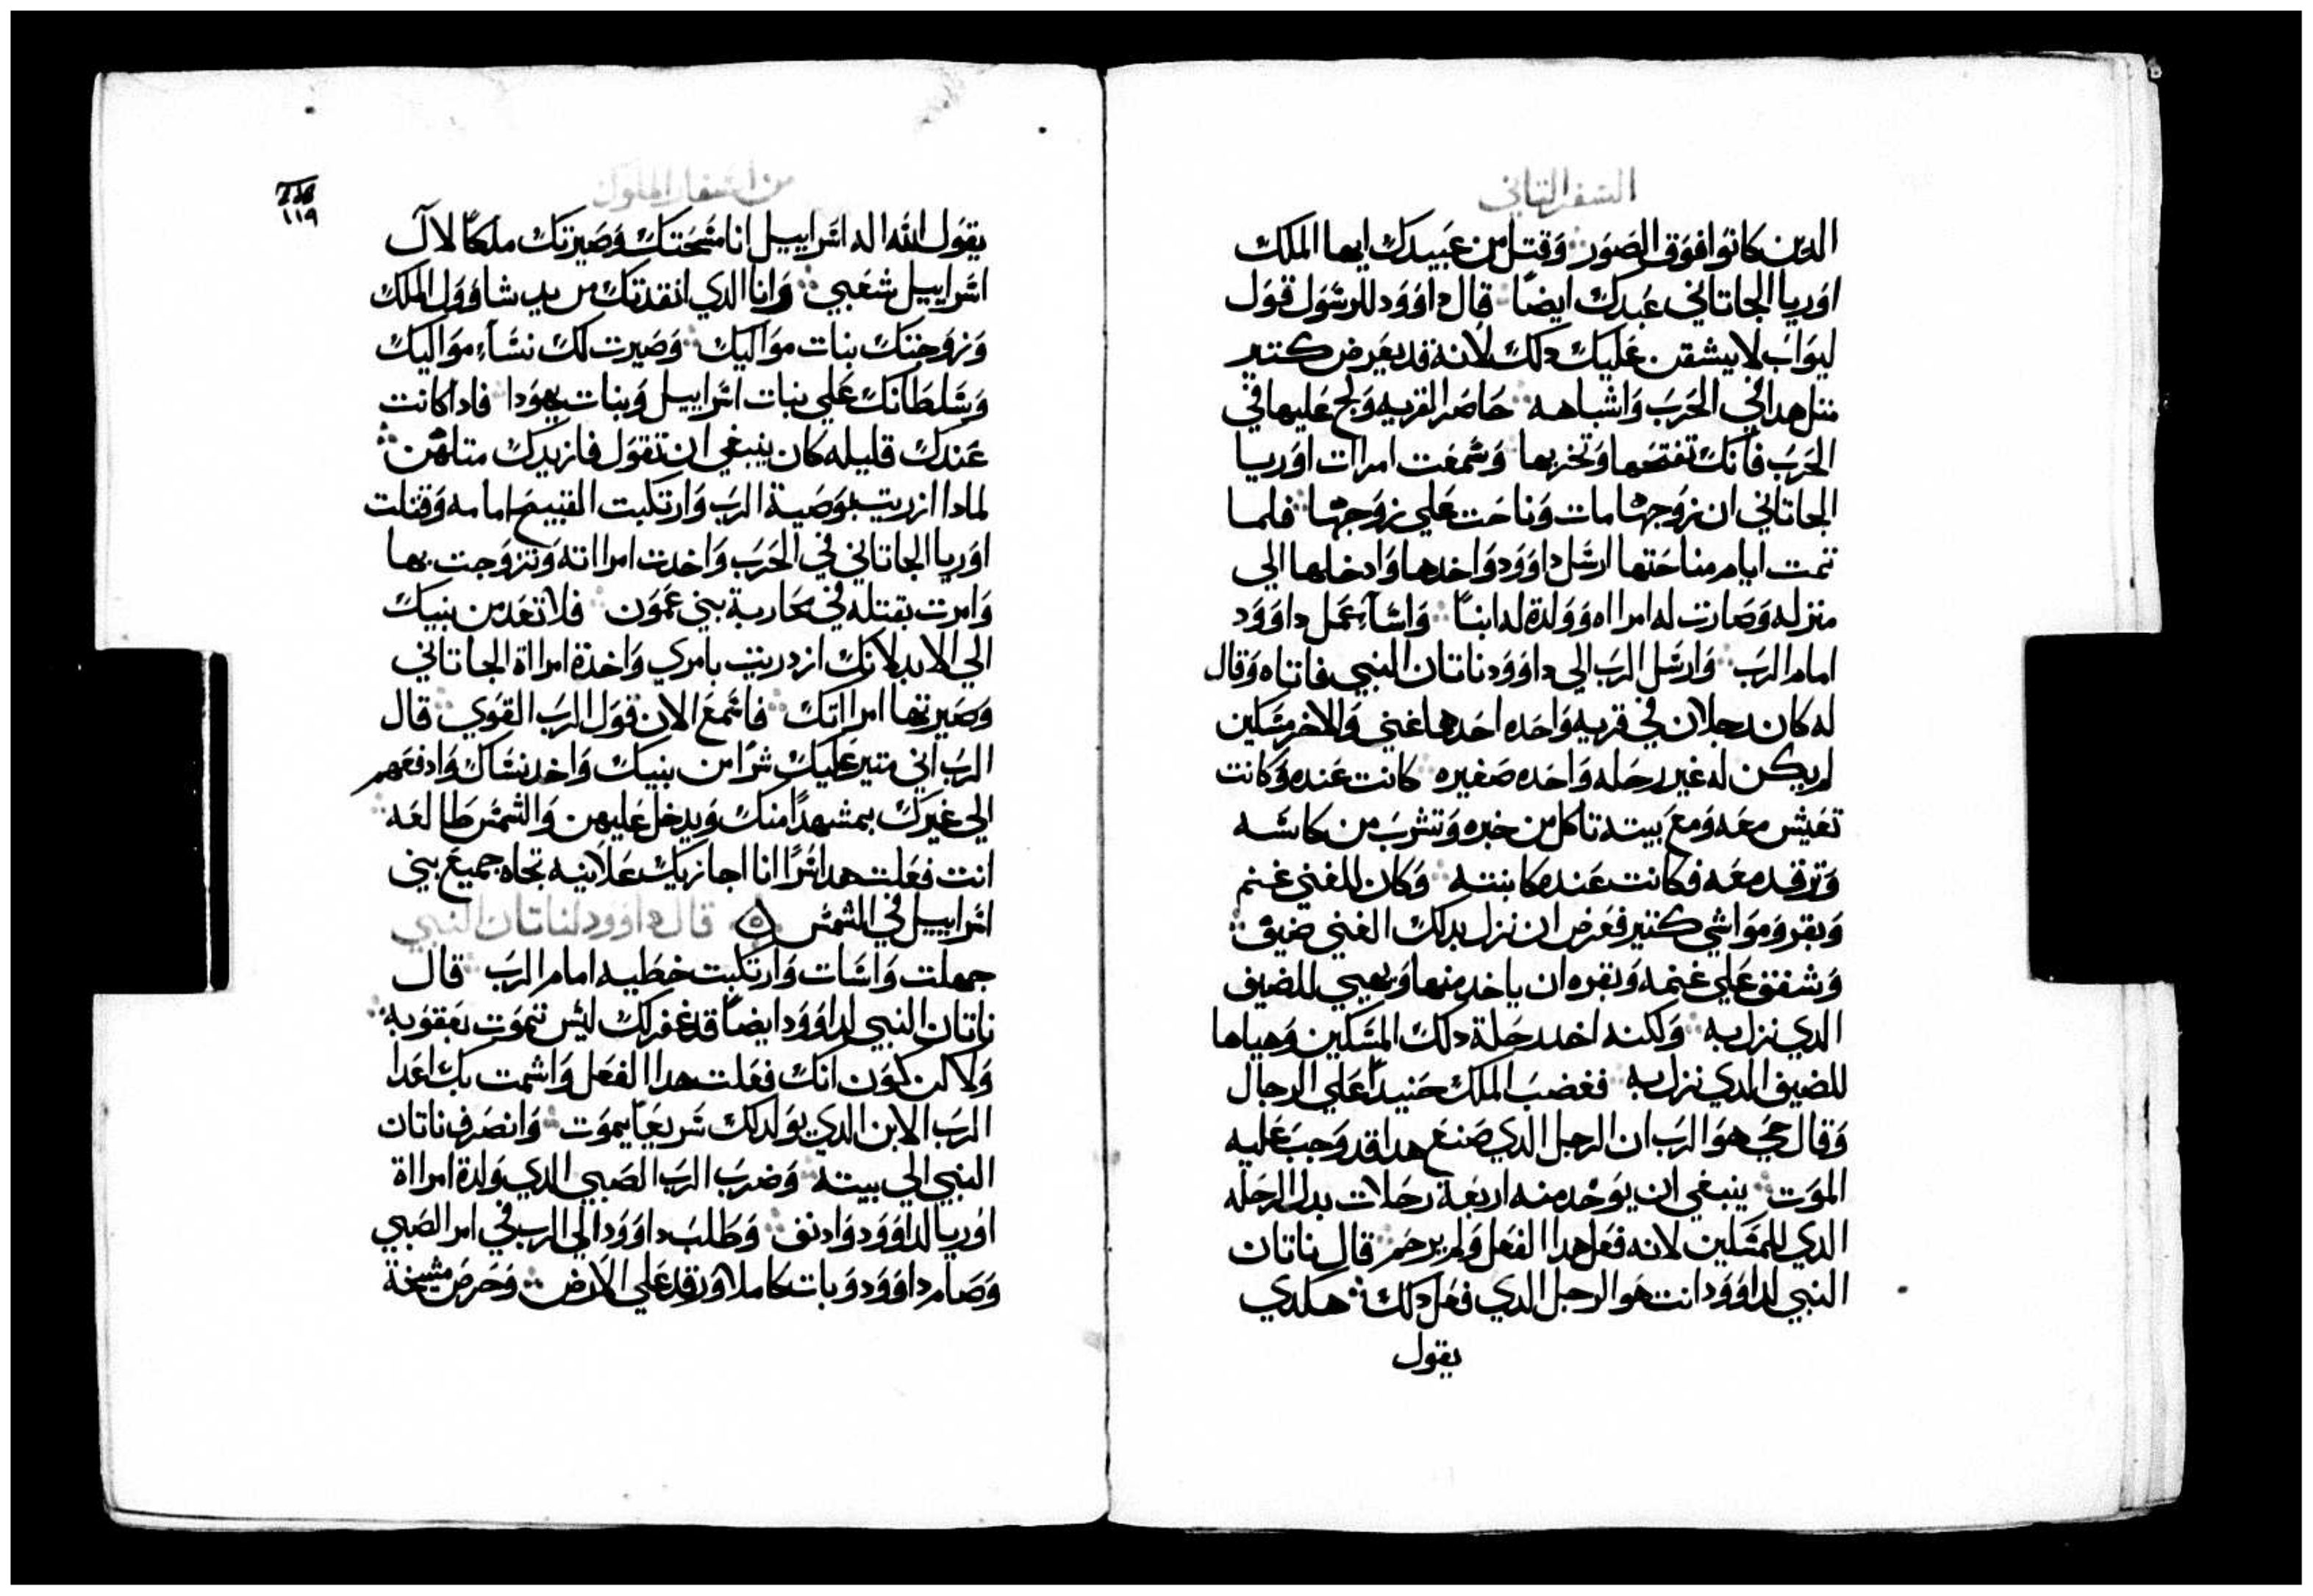 السفر التاني
الدين كانوا فوق الصور وقتل من عبيدك ايها الملك
اوريا الجاتاني عبدك ايضاً قال داوود للرسول قول
ليواب لا يشقن عليك دلك لانه قد يعرض كتير
متل هدا في الحرب واشباهه حاصر القريه ولج عليها في
الحرب فانك تفتحها وتخربها وسمعت امرات اوريا
الجاتاني ان زوجها مات وناحت علي زوجها فلما
تمت ايام مناحتها ارسل داوود واخدها وادخلها الي
منزله وصارت له امراه وولدة له ابناً واساء عمل داوود
امام الرب وارسل الرب الي داوود ناتان النبي فاتاه وقال
له كان رجلان في قريه واحده احدهما غني والاخر مسكين
لم يكن له غير رحله واحده صغيره كانت عنده وكانت
تعيش معه ومع بيته تاكل من خبزه وتشرب من كاسه
وترقد معه فكانت عنده كابنته وكان للغني غنم
وبقر ومواشي كتير فعرض ان نزل بدلك الغني ضيف
وشفق علي غنمه وبقره ان ياخد منها ويهيي للضيف
الدي نزل به ولكنه اخد رحلة دلك المسكين وهياها
للضيف الدي نزل به فغضب الملك حنيداً علي الرجال
وقال حي هو الرب ان الرجل الدي صنع هدا قد وجب عليه
الموت ينبغي ان يوخد منه اربعة رحلات بدل الرحله
الدي للمسكين لانه فعل هدا الفعل ولم يرحم قال ناتان
النبي لداوود انت هو الرجل الدي فعل دلك هكدي
يقول
من اسفار الملوك
١١٩
يقول الله اله اسراييل انا مسحتك وصيرتك ملكاً لال
اسراييل شعبي وانا الدي انقدتك من يد شاوول الملك
وزوجتك بنات مواليك وصيرت لك نساء مواليك
وسلطانك علي بنات اسراييل وبنات يهودا فادا كانت
عندك قليله كان ينبغي ان تقول فازيدك متلهن
لمادا ازريت بوصية الرب وارتكبت القبيح امامه وقتلت
اوريا الجاتاني في الحرب واخدت امراته وتزوجت بها
وامرت بقتله في محاربة بني عمون فلا تعد من بنيك
الي الابد لانك ازدريت بامري واخدة امراة الجاتاني
وصيرتها امراتك فاسمع الان قول الرب القوي قال
الرب اني متير عليك شراً من بنيك واخد نساك وادفعهم
الي غيرك بمشهداً منك ويدخل عليهن والشمس طالعه
انت فعلت هدا سراً انا اجازيك علانيه تجاه جميع بني
اسراييل في الشمس قال داوود لناتان النبي
جهلت واسات وارتكبت خطيه امام الرب قال
ناتان النبي لداوود ايضاً قد غفر لك ليس تموت بعقوبه
ولاكن كون انك فعلت هدا الفعل واشمت بك اعدا
الرب الابن الدي يولد لك سريعاً يموت وانصرف ناتان
النبي الي بيته وضرب الرب الصبي الدي ولدة امراة
اوريا لداوود وادنف وطلب داوود الي الرب في امر الصبي
وصام داوود وبات كاملا ورقد علي الارض وحرص مشيخة